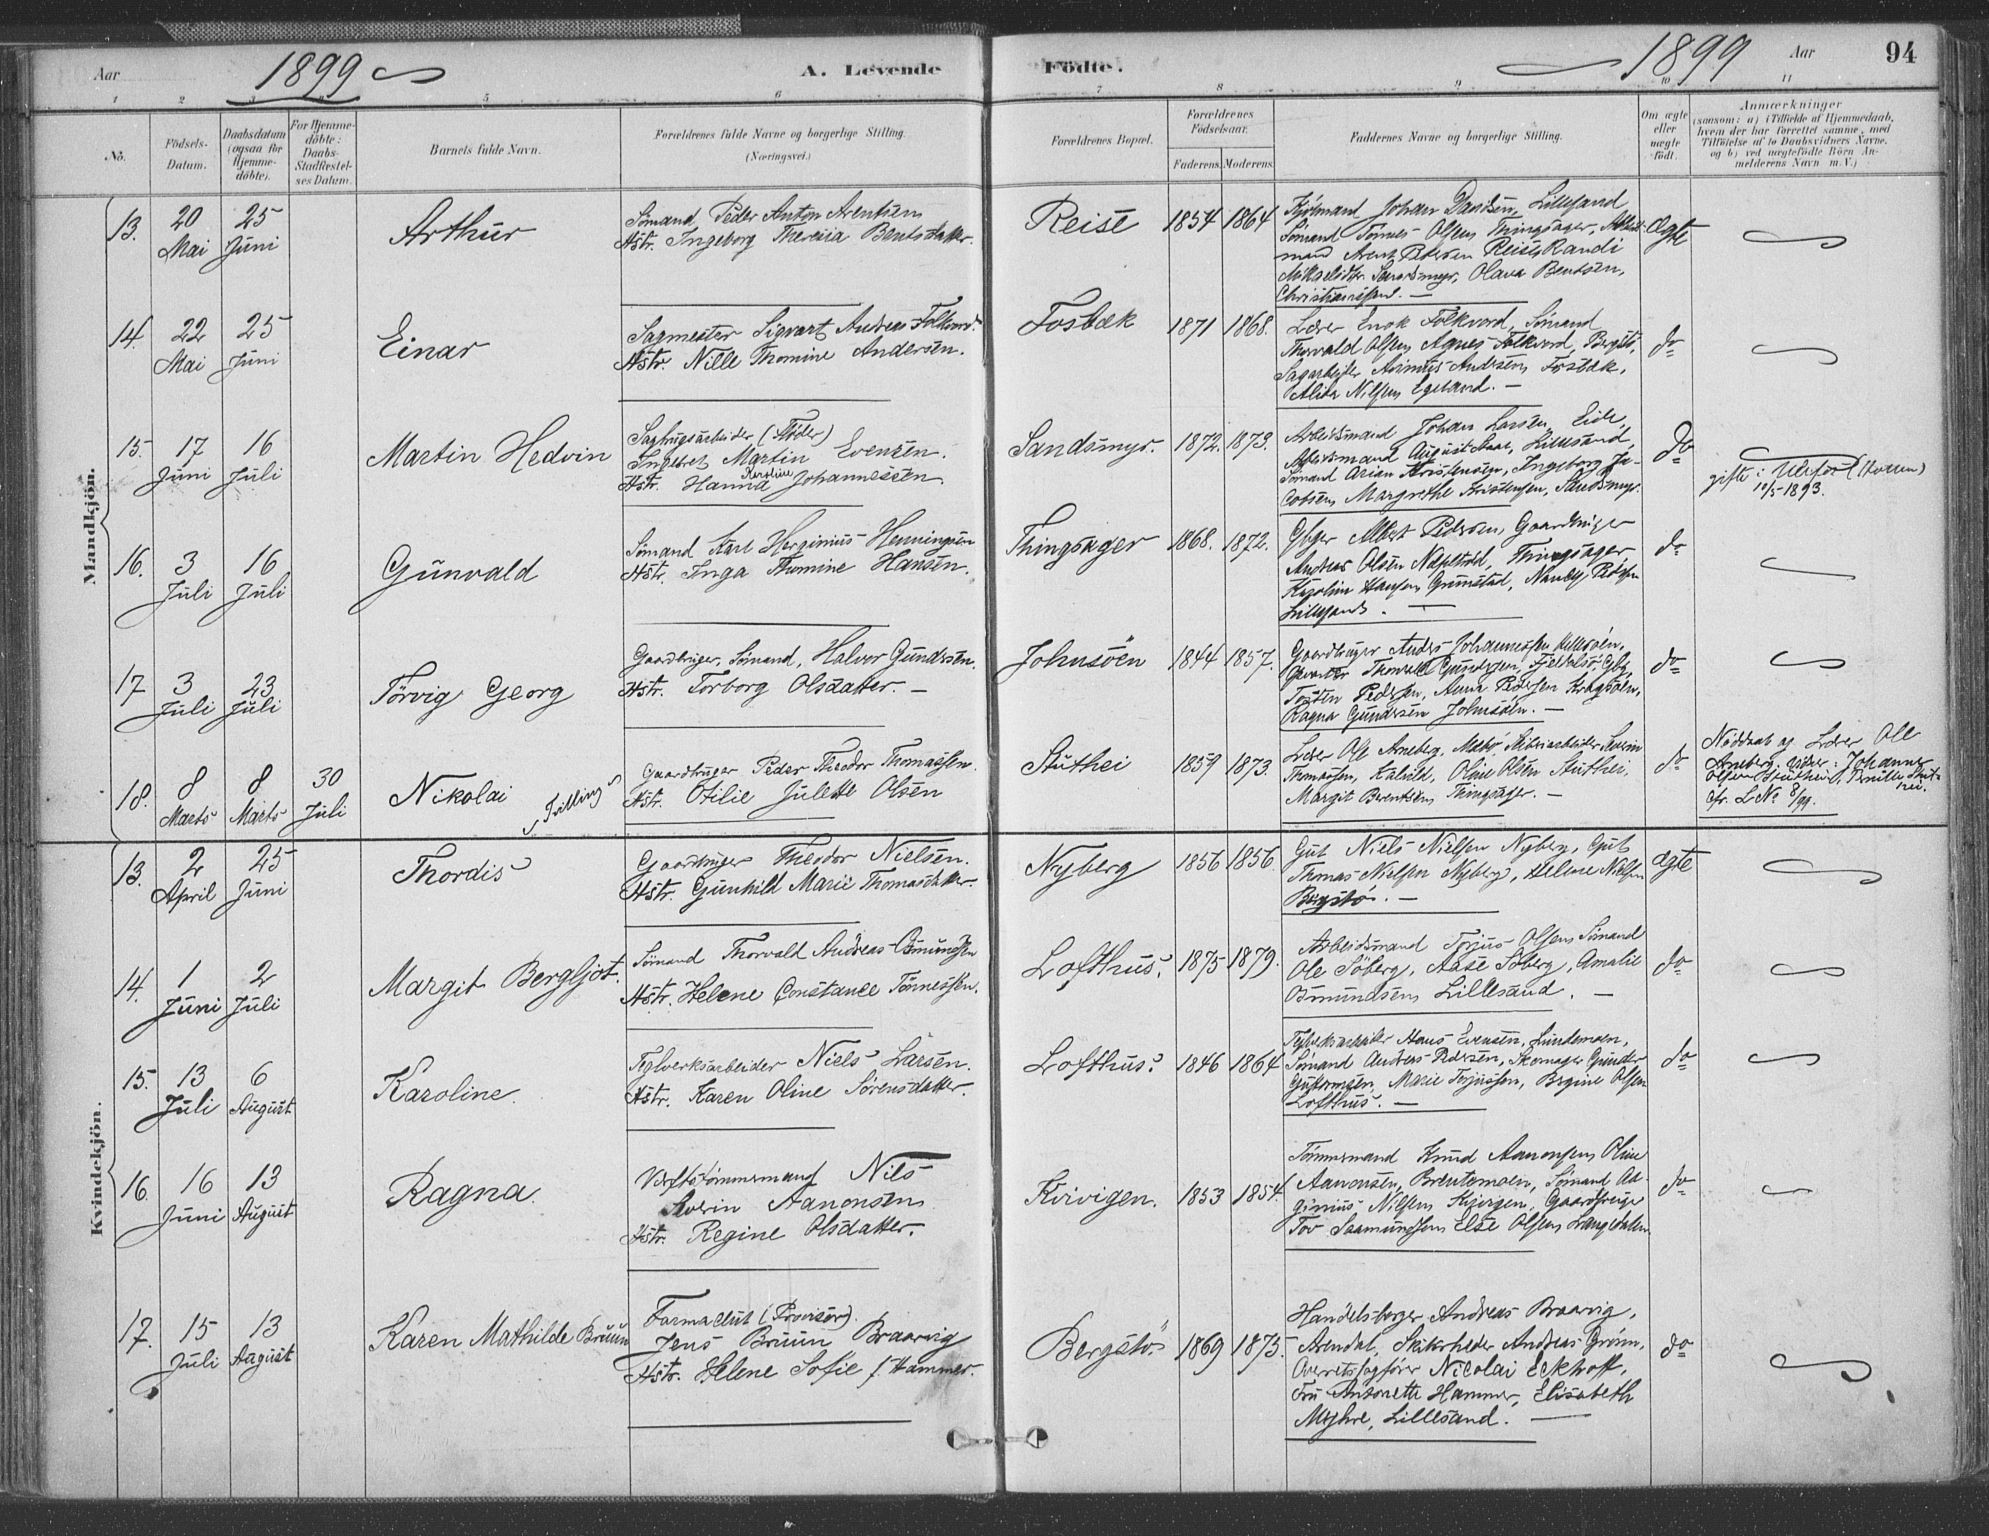 Aar 1899
A. Levende Födte.
1899 Aar 94
1 2 3 5 6 7 8 9 10 11
No.
Födsels-Datum.
Daabsdatum (ogsaa for Hjemme-döbte).
For Hjemme-döbte: Daabs-Stadfæstel-ses Datum.
Barnets fulde Navn.
Forældrenes fulde Navne og borgerlige Stilling.
(Næringsvei.)
Forældrenes Bopæl.
Forældrenes Födselsaar.
Faderens. Moderens.
Faddernes Navne og borgerlige Stilling.
Om ægte eller uægte födt.
Anmærkninger
(saasom: a) i Tilfælde af Hjemmedaab,
hvem der har forrettet samme, med
Tilföielse af to Daabsvidners Navne,
og b) ved uægtefödte Börn An-
melderens Navn m. V.)
Mandkjön.
13. 20 Mai 25 Juni Arthur
Sömand Peder Anton Arentsen
Hstr. Ingeborg Theresia Bentsdatter.
Reise 1854 1864
Johan Davidsen, Lillesand
Sömand Tönnes Olsen Thingsager,
mand Arent Pedersen Reise, Randi
Olava Bentsen,
Christianssand. —
Ægte
14. 22 Mai 25 Juni Einar
Sagmester Sigvart Andreas Folkvord.
Hstr. Nille Thomine Andersen.
Fosbæk 1871 1868.
Lærer Enok Folkvord, Sömand
Thorvald Olsen, Agnes Folkvord, Bergstö,
Sagarbeider Asimus Andersen Fosbæk,
Alida Nilsen Egeland. —
do
15. 17 Juni 16 Juli Martin Hedvin
Sagbrugsarbeider (Flöder)
Ingebret Martin Evensen.
Hstr. Hanna Karoline Johannessen.
Sandsmyr. 1872. 1873.
Arbeidsmand Johan Larsen, Eide,
Arbeidsmand August Lillesand,
Sömand Arian Kristensen, Ingeborg Ja-
cobsen, Margrethe Kristensen, Sandsmyr.
do
gifte i (Holten)
10/5 1893.
16. 3 Juli 16 Juli Gunvald
Sömand Karl Herginius Henningsen
Hstr. Inga Thomine Hansen.
Thingsager 1868. 1872.
Gbger Albert Pedersen, Gaardbruger
Andreas Olsen Thingsager
Karoline Hansen Grimstad, Pedersen
Lillesand. —
do
17 3 Juli 23 Juli Törvig Georg
Gaardbruger, Sömand, Halvor Gundersen.
Hstr. Torborg Olsdatter. —
Johnsöen 1844 1857.
Gaardbruger Anders Johannessen
Gundersen,
Tosten Pedersen, Anna Pedersen
Ragna Gundersen Johnsöen. —
do
18. 8 Marts 8 Marts 30 Juli Nikolai (Tvilling)
Gaardbruger Peder Theodor Thomassen.
Hstr. Otilie Julette Olsen
Stuthei 1859 1873.
Lærer Ole Arneberg, Severin
Thomassen, Kalvild, Oline Olsen Stuthei,
Margit Berentsen Thingsager. —
do
Nöddaab af Lærer Ole
Arneberg. Vidner: Johanne
Olsen Stuthei, Pernille Stut-
hei.
cfr. L No 8/99.
Kvindekjön.
13. 2 April 25 Juni Thordis
Gaardbruger Theodor Nielsen.
Hstr. Gunhild Marie Thomasdatter.
Nyberg 1856 1856.
Gut Niels Nielsen Nyberg, Gut
Thomas Nielsen Nyberg, Helene Nielsen
Bergstö. —
ægte
14. 1 Juni 2 Juli Margit Bergljot.
Sömand Thorvald Andreas Osmundsen
Hstr. Helene Constance Tönnessen.
Lofthus. 1875 1879.
Arbeidsmand Torjus Olsen, Sömand
Ole Söberg, Aase Söberg, Amalie
Osmundsen Lillesand. —
do
15. 13 Juli 6 August Karoline.
Teglverksarbeider Niels Larsen.
Hstr. Karen Oline Sörensdatter.
Lofthus. 1846 1864
Hans Evensen, Lundemoen,
Sömand Andreas Pedersen, Skomager Gunder
Guttormsen, Marie Torjussen, Bergine Olsen
Lofthus. —
do
16. 16 Juni 13 August Ragna.
Værftstömmermand Nils
Severin Aanonsen
Hstr. Regine Olsdatter.
Kvivigen. 1853 1854.
Tömmermand Knud Aanonsen, Oline
Aanonsen, Brentemoen, Sömand
Nilsen Kvivigen, Gaardbruger
Tov Saamundsen, Else Olsen Langedalen.
do
17. 15 Juli 13 August Karen Mathilde Bruun
Farmaceut (Provisor).
Jens Bruun Braarvig
Hstr. Helene Sofie f. Hammer.
Bergstö 1869 1875.
Handelsborger Andreas Braarvig,
Arendal, Skibsrheder Andreas Grönn,
Overretssagförer Nicolai Eckhoff,
Fru Antonette Hammer, Elisabeth
Myhre, Lillesand. —
do